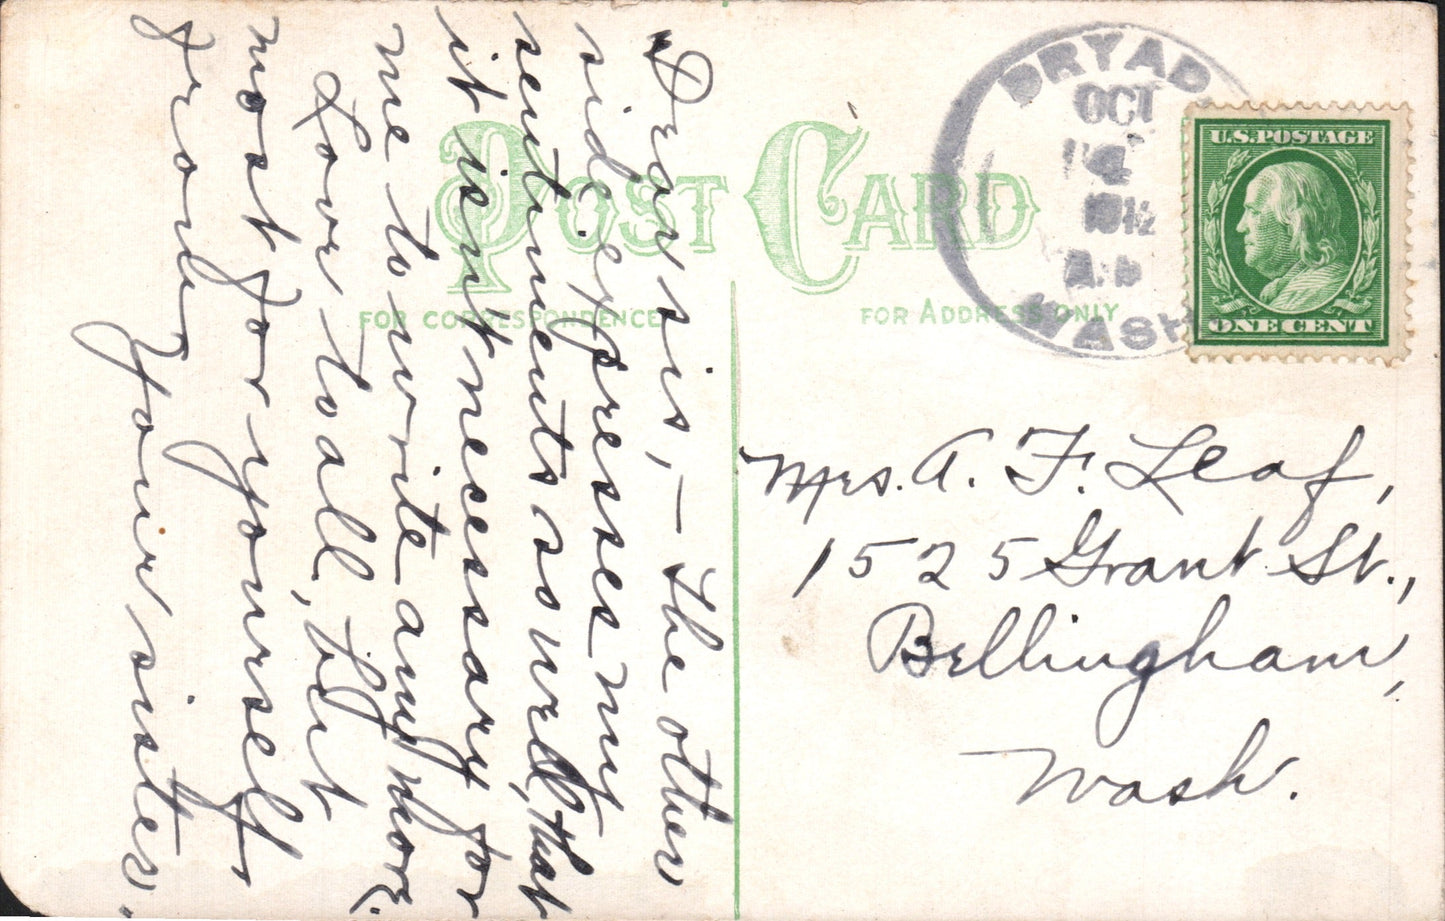 POST CARD
FOR CORRESPONDENCE
FOR ADDRESS ONLY
DRYAD
OCT
4
1912
WASH
U.S. POSTAGE
ONE CENT
Dear sis, — the other
side expresses my
sentiments so well, that
it isnt necessary for
me to write any more.
Love to all, but
most for yourself,
from Your sister.
Mrs. A. F. Leaf,
1525 Grant St.,
Bellingham,
Wash.